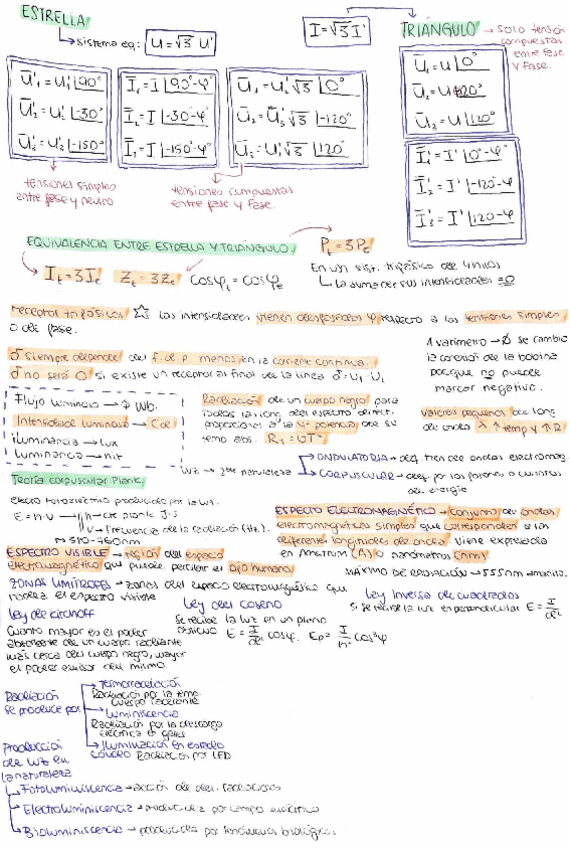 ESTRELLA
→ sistema eq: U = √3 U'
I = √3 I'
TRIÁNGULO → solo tensión compuestas
entre fase
y fase.
U'₁ = U'₁ |90°
U'₂ = U'₂ |-30°
U'₃ = U'₂ |-150°
I₁ = I |90-φ
I₂ = I |-30-φ
I₃ = I |-150-φ
U₁ = U'√3 |0°
U₂ = U'₂√3 |-120°
U₃ = U'√3 |120°
U₁ = U |0°
U₂ = U |-120°
U₂ = U |120°
I'₁ = I' |0°-φ
I'₂ = I' |-120-φ
I'₃ = I' |120-φ
tensiones simples
entre fase y neutro
tensiones compuestas
entre fase y fase.
EQUIVALENCIA ENTRE ESTRELLA Y TRIÁNGULO
Pt = 3Pe
It = 3Ie Zt = 3Ze cosφt = cosφe
En un sist. trifásico de 4 hilos
la suma de sus intensidades = 0
receptor trifásicos ☆ las intensidades vienen desfasadas φ respecto a las tensiones simples
o de fase.
δ siempre depende del f. d p menos en la corriente continua.
δ no será 0 si existe un receptor al final de la línea δ = U₁ - U₁
A varímetro → Ø se cambia
la conexión de la bobina
porque no puede
marcar negativo.
Flujo luminoso → Φ Wb.
Intensidad luminosa → Cd
iluminancia → lux
Luminancia → nit
Radiación de un cuerpo negro para
todas la long. del espectro
a la 4ª potencia de su
temp abs. R = σT⁴
valores pequeños de long
de onda λ ↑ temp y ↑ R
Luz → 2ble naturaleza
ONDULATORIA → def. tren de ondas electromag.
CORPUSCULAR → def. por los fotones o cuantos
de energía
Teoría corpuscular Planck
efecto fotoeléctrico producido por la luz.
E = h·ν → h = cte plank J·s
ν = frecuencia de la radiación (Hz.)
ESPECTO ELECTROMAGNÉTICO → conjunto de ondas
electromagnéticas simples que corresponden a las
diferente longitudes de onda. Viene expresada
en Amstrom (A) o nanómetros (nm)
ESPECTRO VISIBLE → región del espacio
electromagnético que puede percibir el ojo humano
MÁXIMO DE RADIACIÓN → 555nm amarillo.
ZONAS LIMÍTROFES → zonas del espacio electromagnético que
rodea el espectro visible
Ley de Kirchoff
Cuanto mayor es el poder
absorbente de un cuerpo radiante
más cerca del cuerpo negro, mayor
el poder emisor del mismo
Ley del coseno
Se recibe la luz en un plano
oblicuo E = I/d² cosφ. Ep = I/h² cos³φ
Ley Inversa de cuadrados
Si se recibe la luz en perpendicular E = I/d²
Radiación
se produce por
Termorradiación
Radiación por la temp
cuerpo radiante
Luminiscencia
Radiación por la descarga
eléctrica en gases
Iluminación en estado
sólido Radiación por LED
Producción
de luz en
la naturaleza
Fotoluminiscencia → acción de radiaciones
Electroluminiscencia → producida por campo eléctrico
Bioluminiscencia → producida por fenómenos biológicos